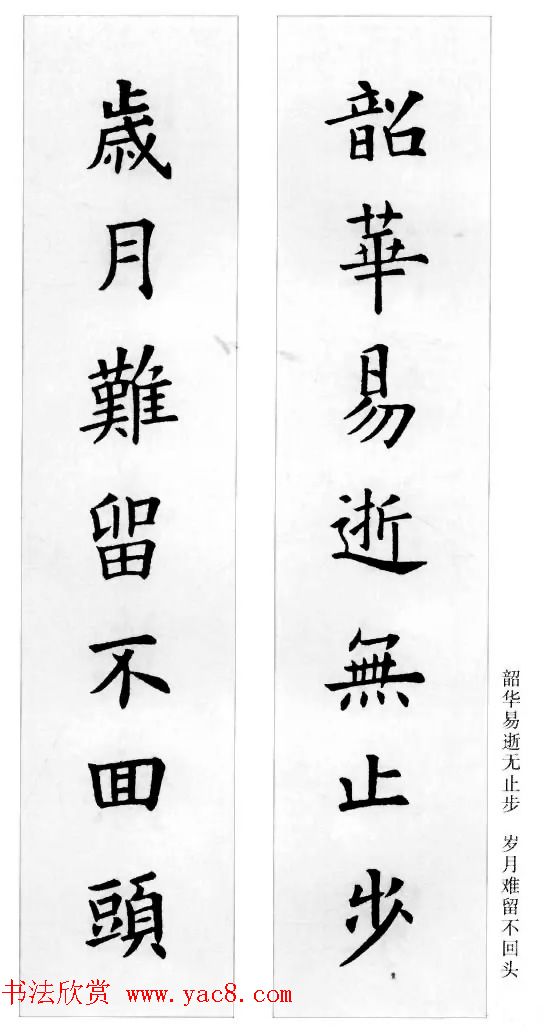 韶華易逝無止步
歲月難留不囬頭
韶华易逝无止步 岁月难留不回头
书法欣赏 www.yac8.com